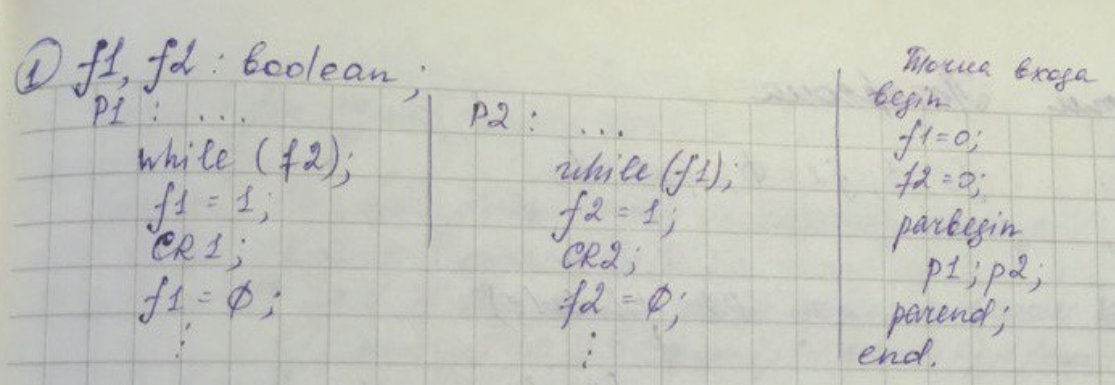 ① f1, f2 : boolean;
P1 : ...
while (f2);
f1 = 1;
CR1;
f1 = Ø;
⋮
P2 : ...
while (f1);
f2 = 1;
CR2;
f2 = Ø;
⋮
Точка входа
begin
f1=0;
f2=0;
parbegin
p1; p2;
parend;
end.